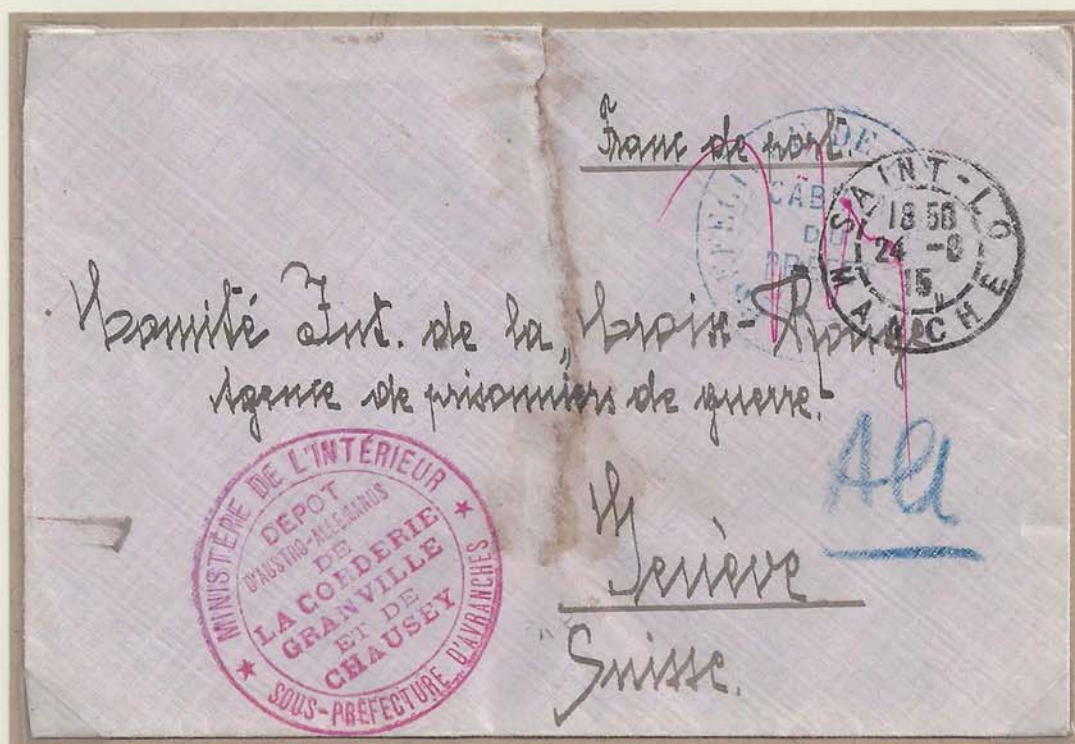 Franc de port.
CABINET
DU
PRÉFET
SAINT-LO
18 50
24 -8
15
MANCHE
Comité Int. de la „Croix-Rouge
Agence de prisonniers de guerre.
All
Genève
Suisse.
MINISTÈRE DE L'INTÉRIEUR
DÉPOT
D'AUSTRO-ALLEMANDS
DE
LA CORDERIE
GRANVILLE
ET DE
CHAUSEY
SOUS-PRÉFECTURE D'AVRANCHES